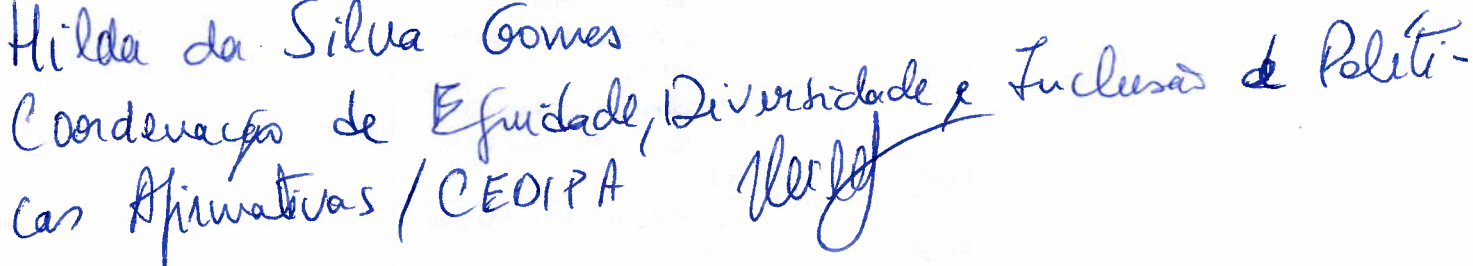 Hilda da Silva Gomes
Coordenação de Equidade, Diversidade e Inclusão de Políti-
cas Afirmativas / CEDIPA